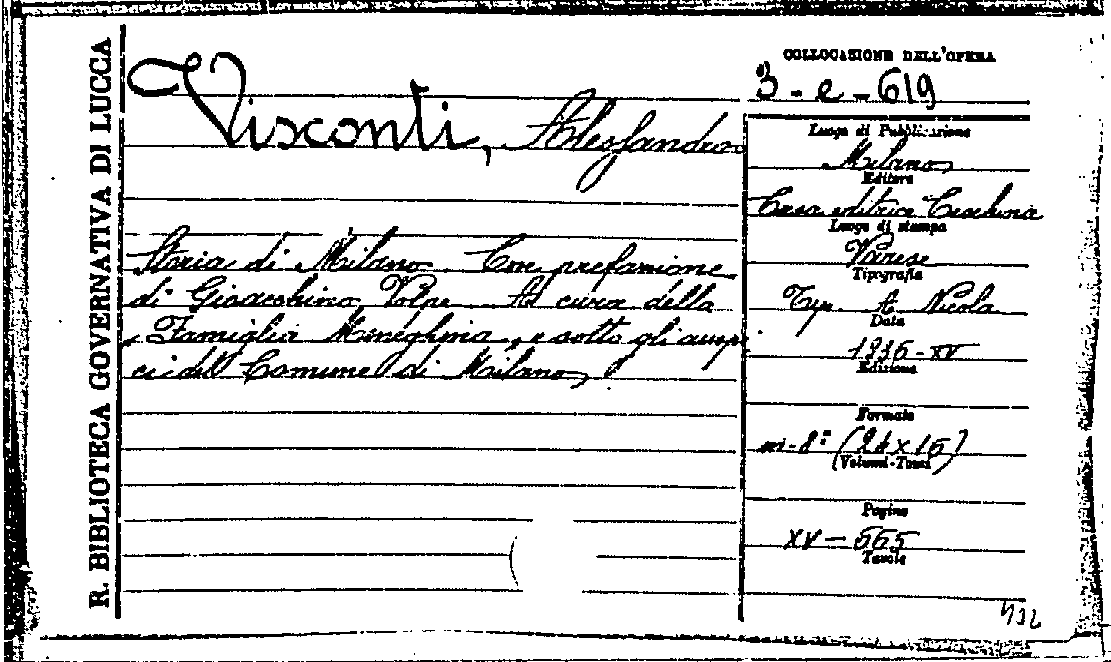 R. BIBLIOTECA GOVERNATIVA DI LUCCA
Visconti, Alessandro
Storia di Milano Con prefazione
di Gioacchino Volpe A cura della
"Famiglia Meneghina", e sotto gli auspi
ci del Comune di Milano
COLLOCAZIONE DELL'OPERA
3-e-619
Luogo di Pubblicazione
Milano
Editore
Casa editrice Ceschina
Luogo di stampa
Varese
Tipografia
Tip A Nicola
Data
1936-XV
Edizione
Formato
in-8° (24x16)
(Volumi-Tomi)
Pagine
XV-665
Tavole